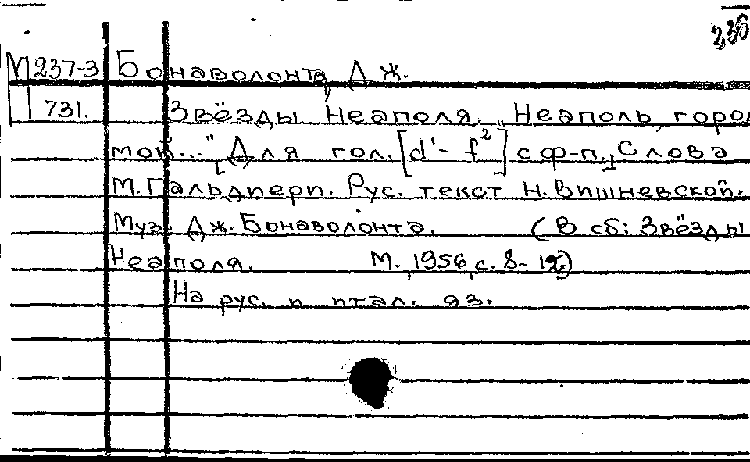 236
М237-3 Бонаволонта Дж.
731. Звёзды Неаполя. „Неаполь, город
мой..." [Для гол. [d'- f²] с ф-п.] Слова
М. Гальдиери. Рус. текст Н. Вишневской.
Муз. Дж. Бонаволонта. (В сб: Звёзды
Неаполя. М., 1956, с. 8-12)
На рус. и итал. яз.